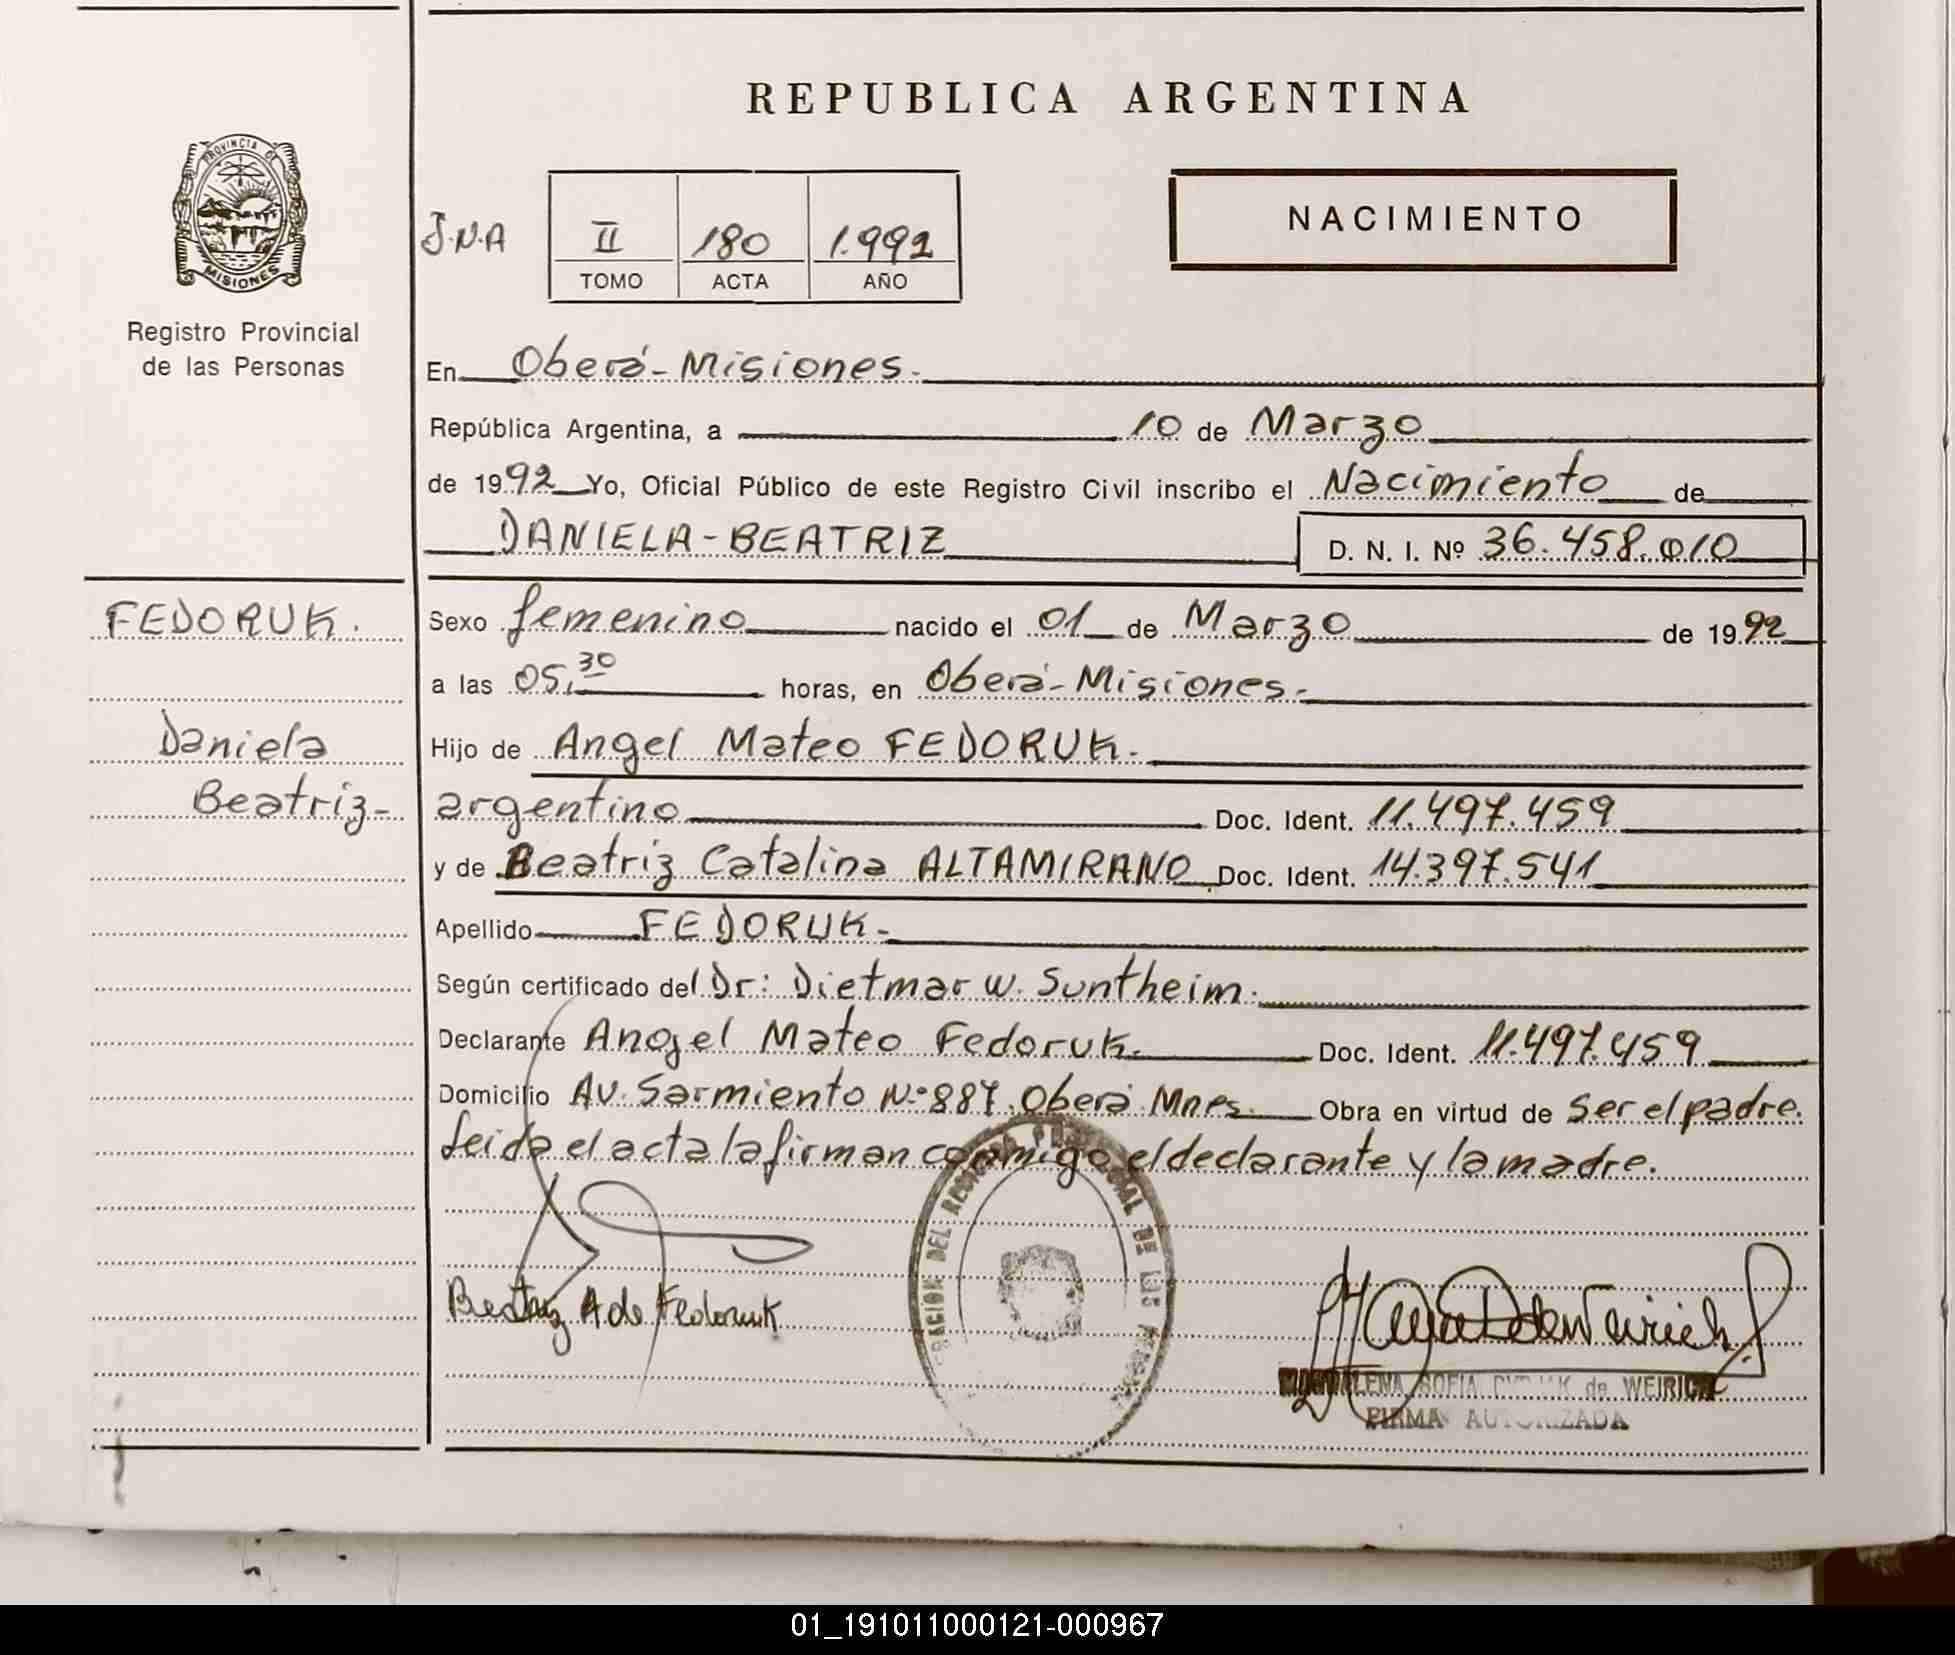 REPUBLICA ARGENTINA
PROVINCIA DE
MISIONES
Registro Provincial
de las Personas
J.N.A
II 180 1.992
TOMO ACTA AÑO
NACIMIENTO
En Oberá-Misiones.
República Argentina, a 10 de Marzo
de 1992 Yo, Oficial Público de este Registro Civil inscribo el Nacimiento de
DANIELA-BEATRIZ D. N. I. Nº 36.458.010
FEDORUK.
Daniela
Beatriz-
Sexo femenino nacido el 01 de Marzo de 1992
a las 05,30 horas, en Oberá-Misiones.-
Hijo de Angel Mateo FEDORUK.
argentino Doc. Ident. 11.497.459
y de Beatriz Catalina ALTAMIRANO Doc. Ident. 14.397.541
Apellido FEDORUK-
Según certificado del Dr: Dietmar W. Suntheim.
Declarante Angel Mateo Fedoruk. Doc. Ident. 11.497.459
Domicilio Av. Sarmiento Nº 887. Oberá Mnes. Obra en virtud de ser el padre.
Leida el acta la firman conmigo el declarante y la madre.
Beatriz A de Fedoruk
DEL DE LAS
MAGDALENA SOFIA de WEIRICH
FIRMA AUTORIZADA
01_191011000121-000967